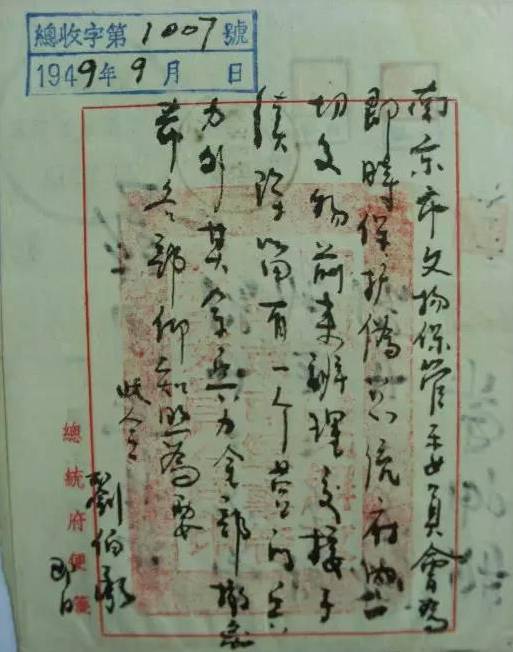 總收字第1007號
1949年9月 日
南京市文物保管委員會為
即時保护偽总统府
切文物前来辦理交接手
續除留有一个营的兵
力外其余兵力全部撤
各部仰知照為要
此令
劉伯承
總統府便箋